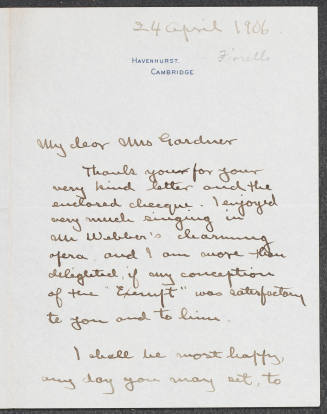 24 April 1906.
Fiorello
HAVENHURST.
CAMBRIDGE
My dear Mrs Gardner
Thank you for your
very kind letter and the
enclosed cheque. I enjoyed
very much singing in
Mr Webber's charming
opera and I am more than
delighted, if my conception
of the "Exempt" was satisfactory
to you and to him.
I shall be most happy,
any day you may set, to